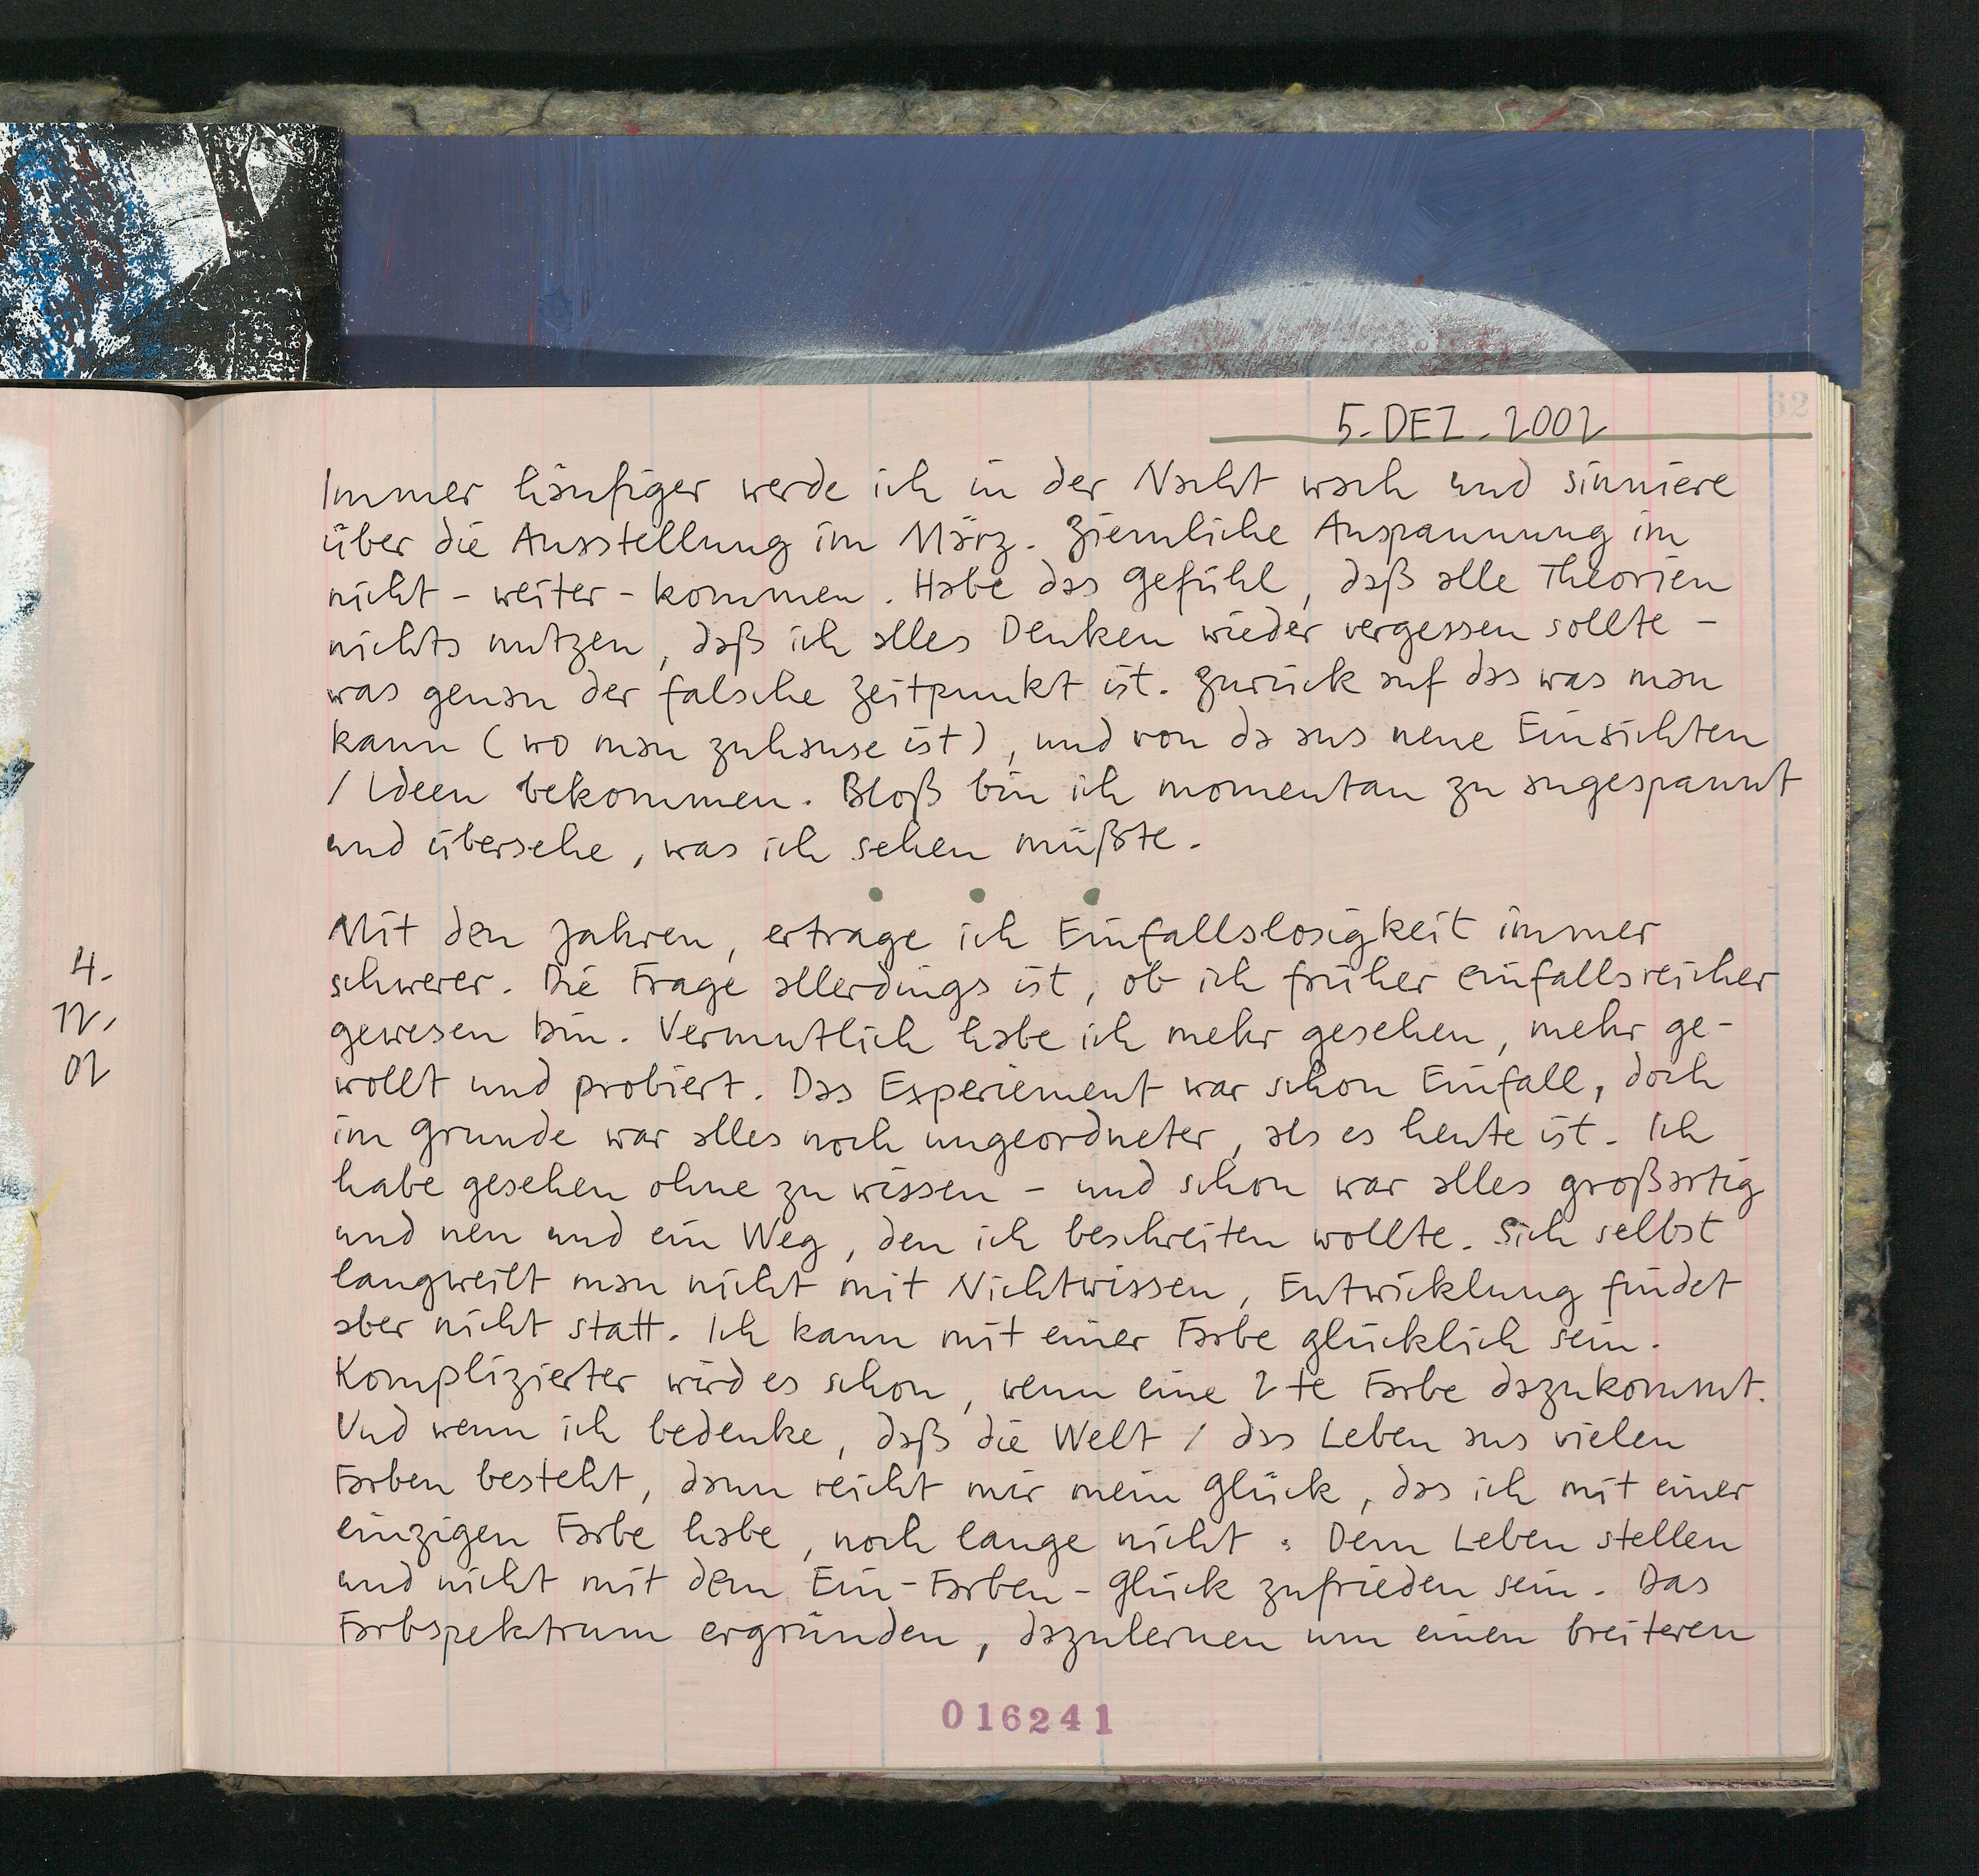 4.
12.
02
62
5. DEZ. 2002
Immer häufiger werde ich in der Nacht wach und sinniere
über die Ausstellung im März. Ziemliche Anspannung im
nicht-weiter-kommen. Habe das Gefühl, daß alle Theorien
nichts nutzen, daß ich alles Denken wieder vergessen sollte -
was genau der falsche Zeitpunkt ist. Zurück auf das was man
kann (wo man zuhause ist), und von da aus neue Einsichten
/ Ideen bekommen. Bloß bin ich momentan zu angespannt
und übersehe, was ich sehen müßte.
Mit den Jahren, ertrage ich Einfallslosigkeit immer
schwerer. Die Frage allerdings ist, ob ich früher einfallsreicher
gewesen bin. Vermutlich habe ich mehr gesehen, mehr ge-
wollt und probiert. Das Experiement war schon Einfall, doch
im Grunde war alles noch ungeordneter, als es heute ist. Ich
habe gesehen ohne zu wissen - und schon war alles großartig
und neu und ein Weg, den ich beschreiten wollte. Sich selbst
langweilt man nicht mit Nichtwissen, Entwicklung findet
aber nicht statt. Ich kann mit einer Farbe glücklich sein.
Komplizierter wird es schon, wenn eine 2te Farbe dazukommt.
Und wenn ich bedenke, daß die Welt / das Leben aus vielen
Farben besteht, dann reicht mir mein Glück, das ich mit einer
einzigen Farbe habe, noch lange nicht. Dem Leben stellen
und nicht mit dem Ein-Farben-Glück zufrieden sein. Das
Farbspektrum ergründen, dazulernen um einen breiteren
016241